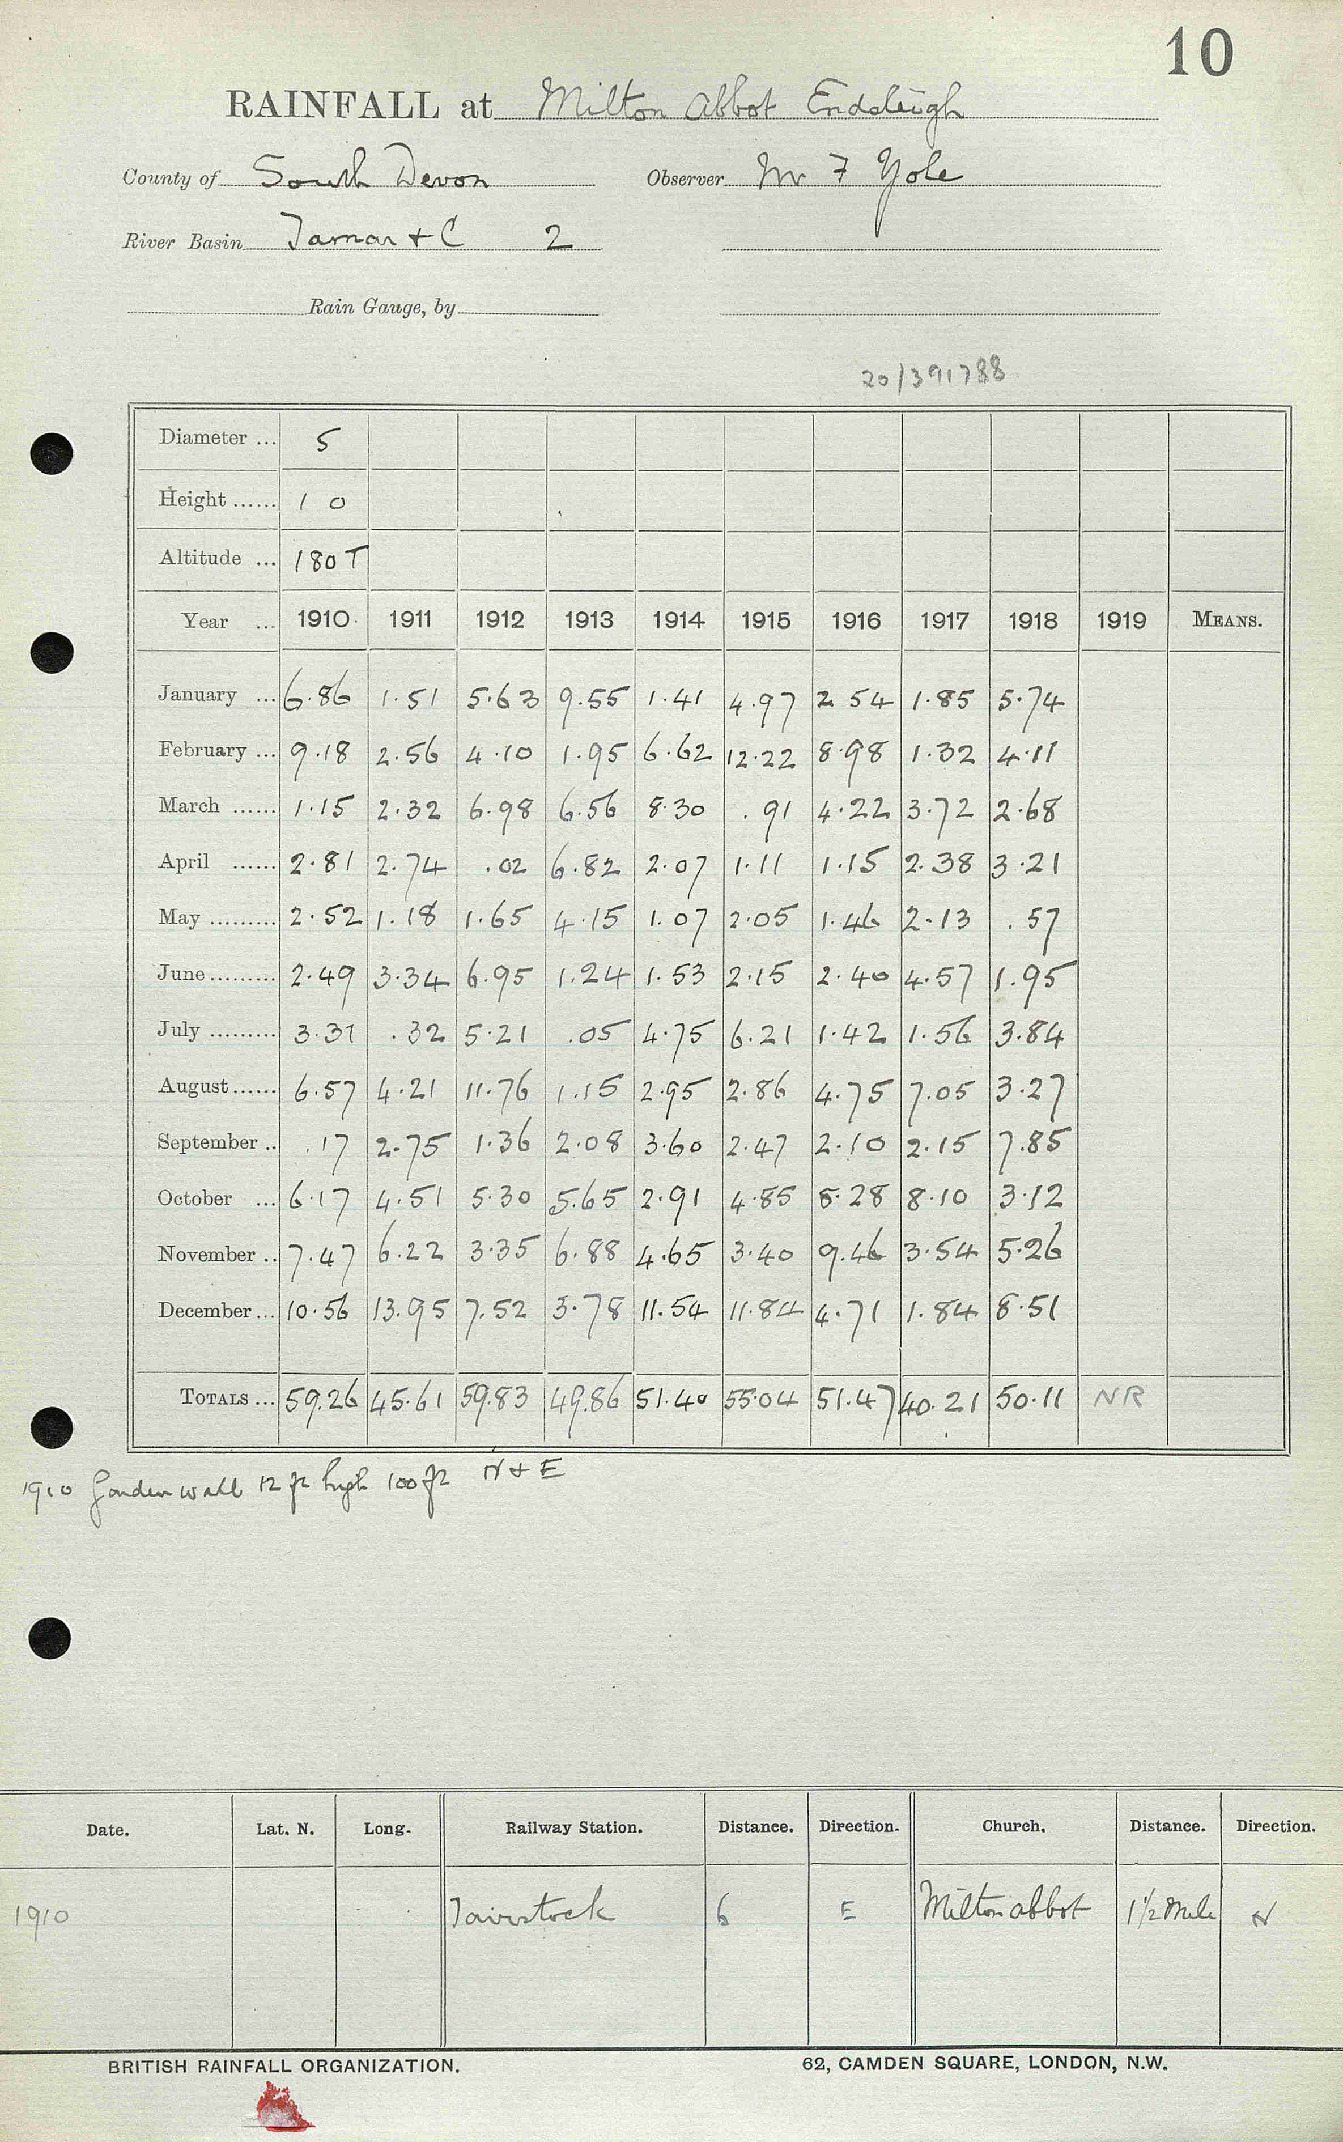 10
RAINFALL at Milton Abbot Endsleigh
County of South Devon Observer Mr F Yole
River Basin Tamar + C 2
Rain Gauge, by
20/391788
Diameter ... 5
Height ...... 1 0
Altitude ... 180 T
Year ... 1910 1911 1912 1913 1914 1915 1916 1917 1918 1919 MEANS.
January ... 6.86 1.51 5.63 9.55 1.41 4.97 2 54 1.85 5.74
February ... 9.18 2.56 4.10 1.95 6.62 12.22 8.98 1.32 4.11
March ...... 1.15 2.32 6.98 6.56 8.30 .91 4.22 3.72 2.68
April ...... 2.81 2.74 .02 6.82 2.07 1.11 1.15 2.38 3.21
May ......... 2.52 1.18 1.65 4.15 1.07 2.05 1.46 2.13 .57
June ......... 2.49 3.34 6.95 1.24 1.53 2.15 2.40 4.57 1.95
July ......... 3.31 .32 5.21 .05 4.75 6.21 1.42 1.56 3.84
August ...... 6.57 4.21 11.76 1.15 2.95 2.86 4.75 7.05 3.27
September .. .17 2.75 1.36 2.08 3.60 2.47 2.10 2.15 7.85
October ... 6.17 4.51 5.30 5.65 2.91 4.85 8.28 8.10 3.12
November .. 7.47 6.22 3.35 6.88 4.65 3.40 9.46 3.54 5.26
December ... 10.56 13.95 7.52 3.78 11.54 11.84 4.71 1.84 8.51
TOTALS ... 59.26 45.61 59.83 49.86 51.40 55.04 51.47 40.21 50.11 NR
1910 Garden wall 12 ft high 100 ft N + E
Date. Lat. N. Long. Railway Station. Distance. Direction. Church. Distance. Direction.
1910 Tavistock 6 E Milton abbot 1 1/2 Mile N
BRITISH RAINFALL ORGANIZATION. 62, CAMDEN SQUARE, LONDON, N.W.